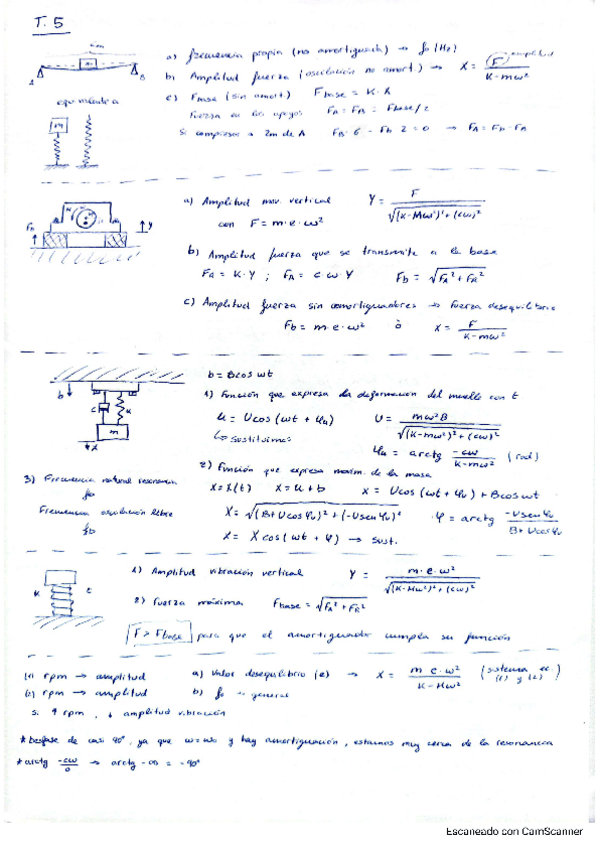 T. 5
a) frecuencia propia (no amortiguada) → f₀ (Hz)
b) Amplitud fuerza (oscilación no amort.) → X = F / K-mω² amplitud
A B
equivalente a
c) Fbase (sin amort.) Fbase = K·X
Fuerza en los apoyos FA = FB = Fbase/2
Si compresor a 2m de A FB·6 - Fb·2 = 0 →
a) Amplitud mov. vertical Y = F / √((K-Mω²)²+(cω)²)
con F = m·e·ω²
b) Amplitud fuerza que se transmite a la base
FA = K·Y ; FA = cωY Fb = √(FA²+FR²)
c) Amplitud fuerza sin amortiguadores → fuerza desequilibrio
Fb = m·e·ω² ò X = F / K-mω²
b = B cos ωt
1) Función que expresa la deformación del muelle con t
u = U cos (ωt + φu) U = mω²B / √((K-mω²)²+(cω)²)
↳ sustituimos φu = arctg -cω / K-mω² (rad)
2) Función que expresa movim. de la masa
x = x(t) x = u + b x = U cos (ωt + φu) + B cos ωt
X = √((B+U cos φu)²+(-U sen φu)² φ = arctg -U sen φu / B+U cos φu
x = X cos (ωt + φ) → sust.
3) Frecuencia natural resonancia
f₀
Frecuencia oscilación libre
fD
1) Amplitud vibración vertical Y = m·e·ω² / √((K-Mω²)²+(cω)²)
2) Fuerza máxima Fbase = √(FA²+FR²)
F > Fbase para que el amortiguador cumpla su función
(1) rpm → amplitud a) Valor desequilibrio (e) → X = m e·ω² / K-Mω² (sistema ec. (1) y (2))
(2) rpm → amplitud b) f₀ → general
si ↑ rpm, ↓ amplitud vibración
* Desfase de casi 90°, ya que ω≈ω₀ y hay amortiguación, estamos muy cerca de la resonancia
* arctg -cω / 0 → arctg -∞ = -90°
Escaneado con CamScanner